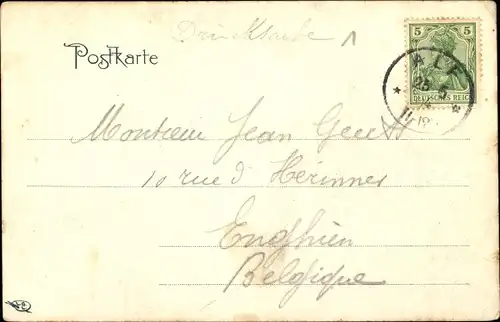 Drucksache
Postkarte
5 5
DEUTSCHES REICH
ALF
Monsieur Jean
10 rue d'Hérinnes
Enghien
Belgique